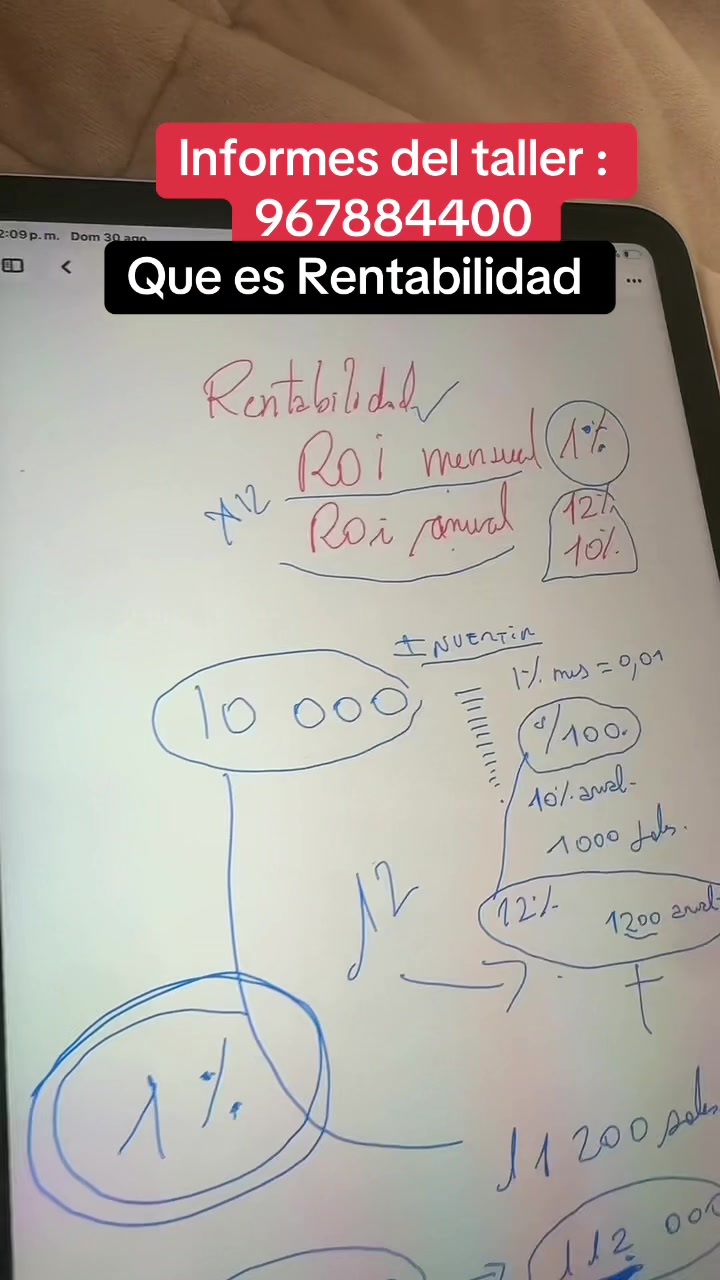 Informes del taller :
967884400
2:09 p. m. Dom 30 ago
Que es Rentabilidad
Rentabilidad
ROi mensual 1%
x12
ROi anual 12%
10%
INVERTIR
1% mes = 0,01
10 000
s/100.
10% anual.
1000 soles.
12
12% 1200 anual
1%
11 200 soles
112 000